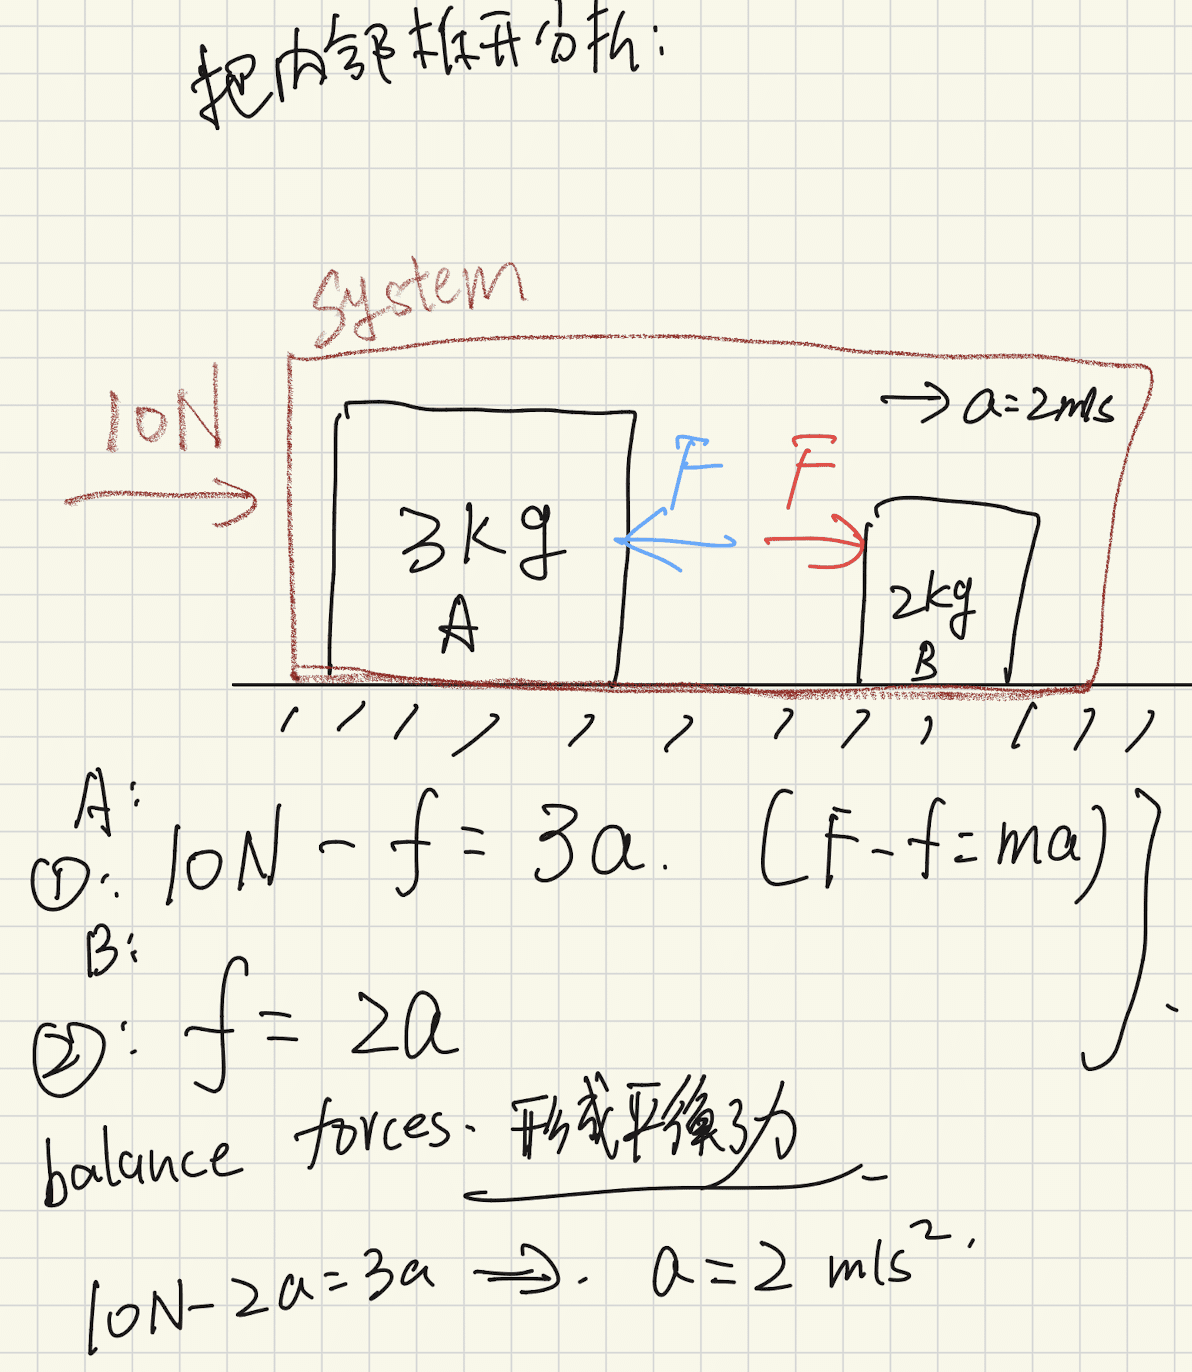 把内部拆开分析:
system
10N
→ a=2m/s
F
F
3kg
A
2kg
B
A:
①: 10N - f = 3a. (F-f=ma)
B:
②: f = 2a
balance forces. 形成平衡力
10N-2a=3a ⇒. a=2 m/s².